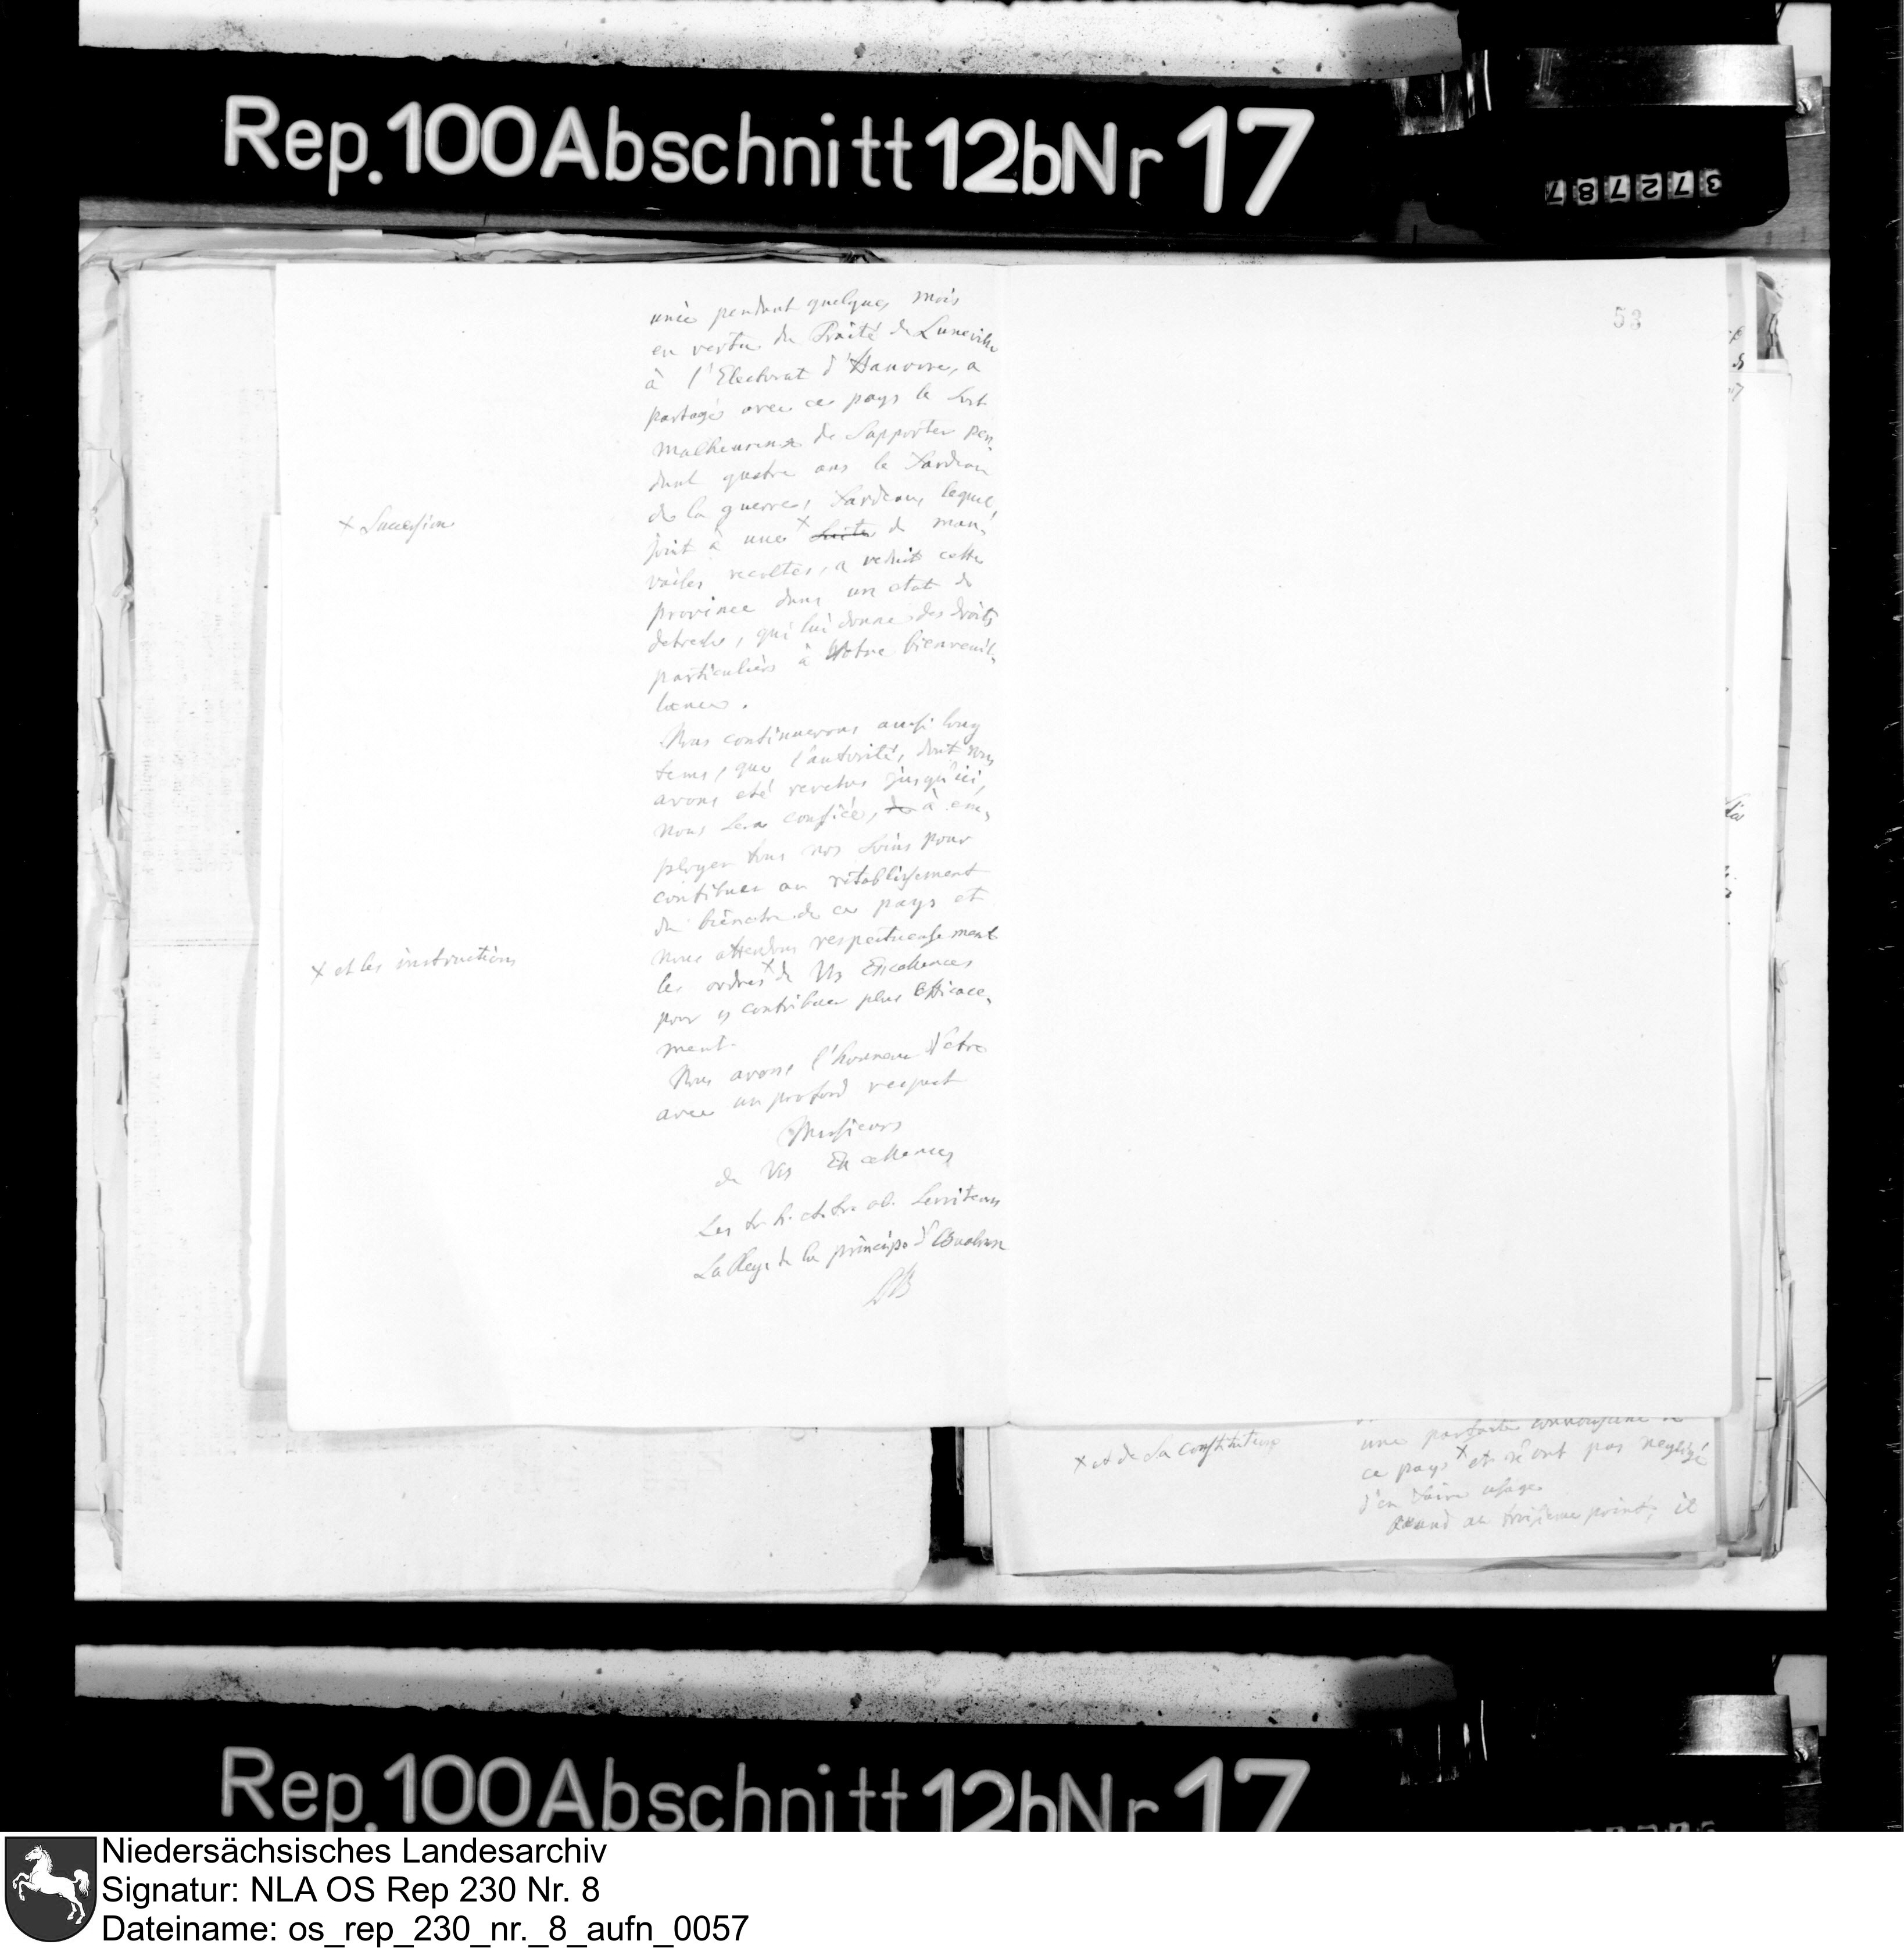 Rep. 100 Abschnitt 12b Nr 17
3727287
53
unie pendant quelques mois
en vertu du Traité de Luneville
à l'Electorat d'Hanovre, a
partagé avec ce pays le sort
malheureux de supporter pen,
dant quatre ans le fardeau
de la guerre, fardeau, lequel,
+ Succession
joint à une + suite de mau,
vaises recoltes, a reduit cette
province dans un etat de
detresse, qui lui donne des droits
particuliers à Votre bienveuil,
lance.
Nous continuerons aussi long
tems, que l'autorité, dont nous
avons eté revetus jusqu'ici,
nous sera confiée, de à em,
ployer tous nos soins pour
contribuer au rétablissement
du bienetre de ce pays et
nous attendons respectueusement
+ et les instructions
les ordres + de Vos Excellences
pour y contribuer plus efficace,
ment.
Nous avons l'honneur d'etre
avec un profond respect
Messieurs
de Vos Excellences
Les tr. h. et tr. ob. Serviteurs
La Reg. de la princip. d'Osnabruc
+ et de sa constitution
une parfaite connoissance de
ce pays + et n'ont pas negligé
d'en faire usage
Quand au troisieme point, il
Rep. 100 Abschnitt 12b Nr 17
Niedersächsisches Landesarchiv
Signatur: NLA OS Rep 230 Nr. 8
Dateiname: os_rep_230_nr._8_aufn_0057